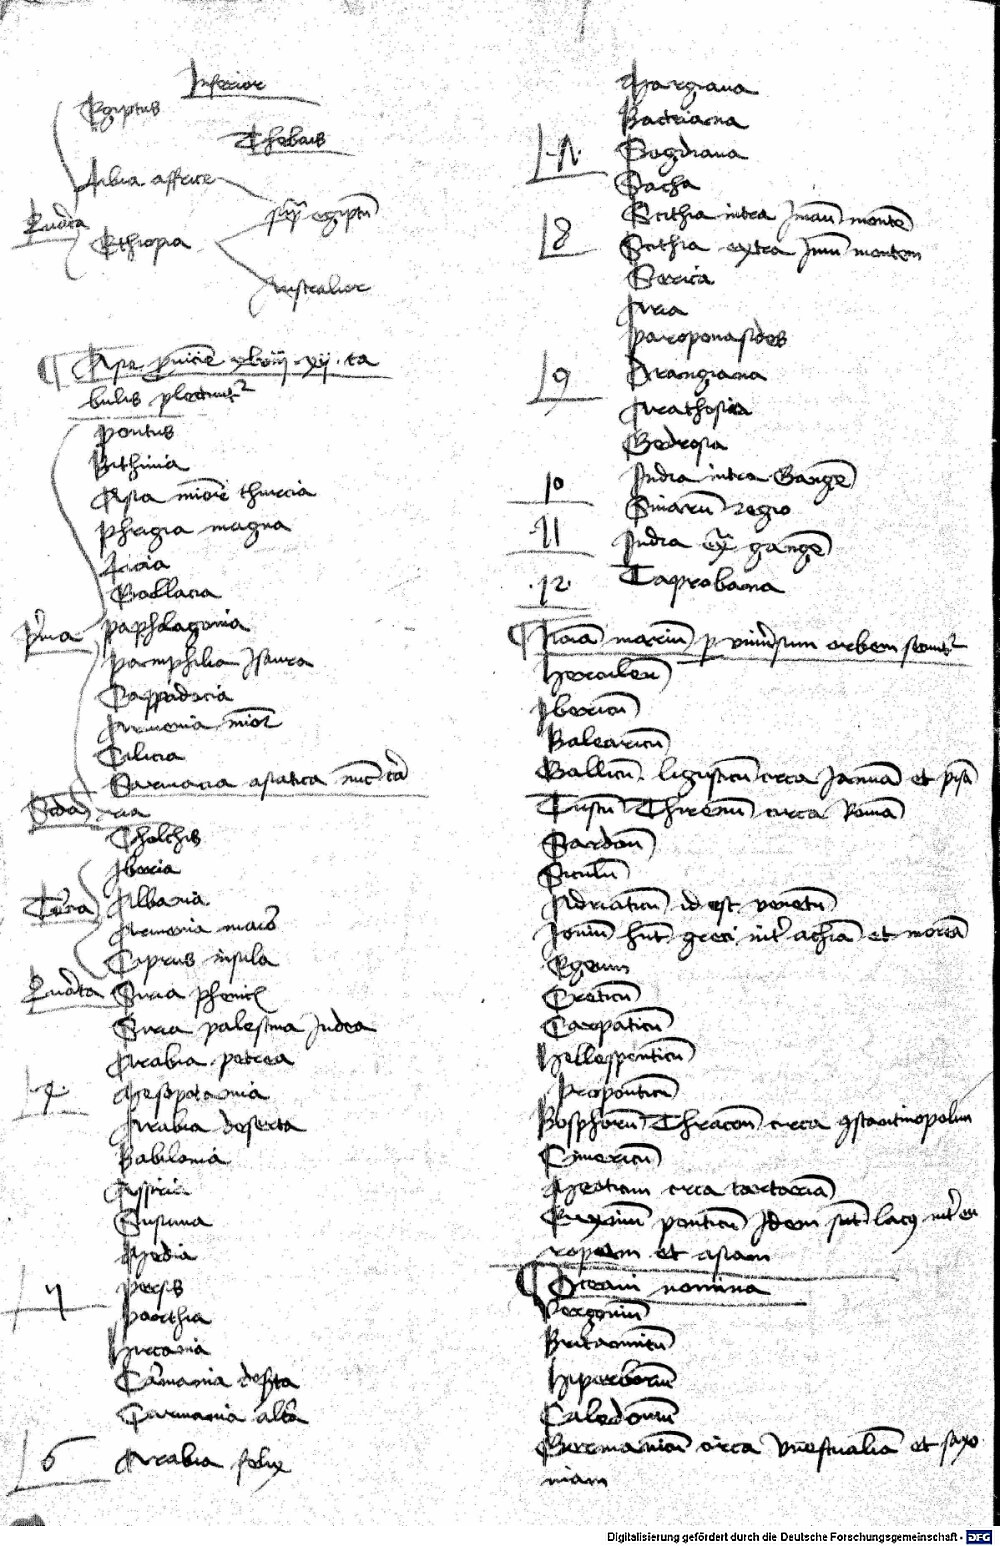 Inferior
Egiptus
Thebais
Libia affrice
Quarta
sub egiptu
Ethiopia
Australior
Asie prouincie xlviij xij ta
bulis
pontus
Bithinia
Asia minor thurcia
phrigia magna
licia
Gallacia
prima paphlagonia
pamphilia Isaura
Cappadocia
Armenia minor
Cilicia
Sarmacia asiatica nunc tarta
Secunda ria
Cholchis
Iberia
Tercia Albania
Armenia maior
Ciprus insula
Quarta Siria phenicis
Siria palestina Iudea
Arabia petrea
Mesopotamia
Arabia deserta
Babilonia
Assiria
Susiana
Media
persis
parthia
Hircania
Carmania deserta
Carmania altera
6 Arabia felix
Margiana
Bactriana
Sogdiana
Sacha
Scithia intra Imaum montem
8 Scithia extra Imaum montem
Serica
Aria
paroponasides
9 Drangiana
Arathosia
Gedrosia
10 India intra Gangem
Sinarum regio
11 India extra gangem
12 Taprobana
Noia marium per vniuersum orbem
Herculeum
Ibericum
Balearicum
Gallicum ligusticum circa Ianuam et pisam
Tuscum Thirenum circa Romam
Sardoum
Siculum
Adriaticum id est venetum
Ionium grecum inter achaiam et moream
Egeum
Creticum
Carpaticum
Hellesponticum
Proponticum
Bosphorum Thracon circa constantinopolim
Cimericum
Meoticum circa tartariam
Euxinum ponticum Idem sunt lacus inter eu
ropam et asiam
Oceani nomina
Vergonium
Britannicum
Hiperboreum
Caledonium
Germanicum circa vuestualiam et saxo
niam
Digitalisierung gefördert durch die Deutsche Forschungsgemeinschaft - DFG